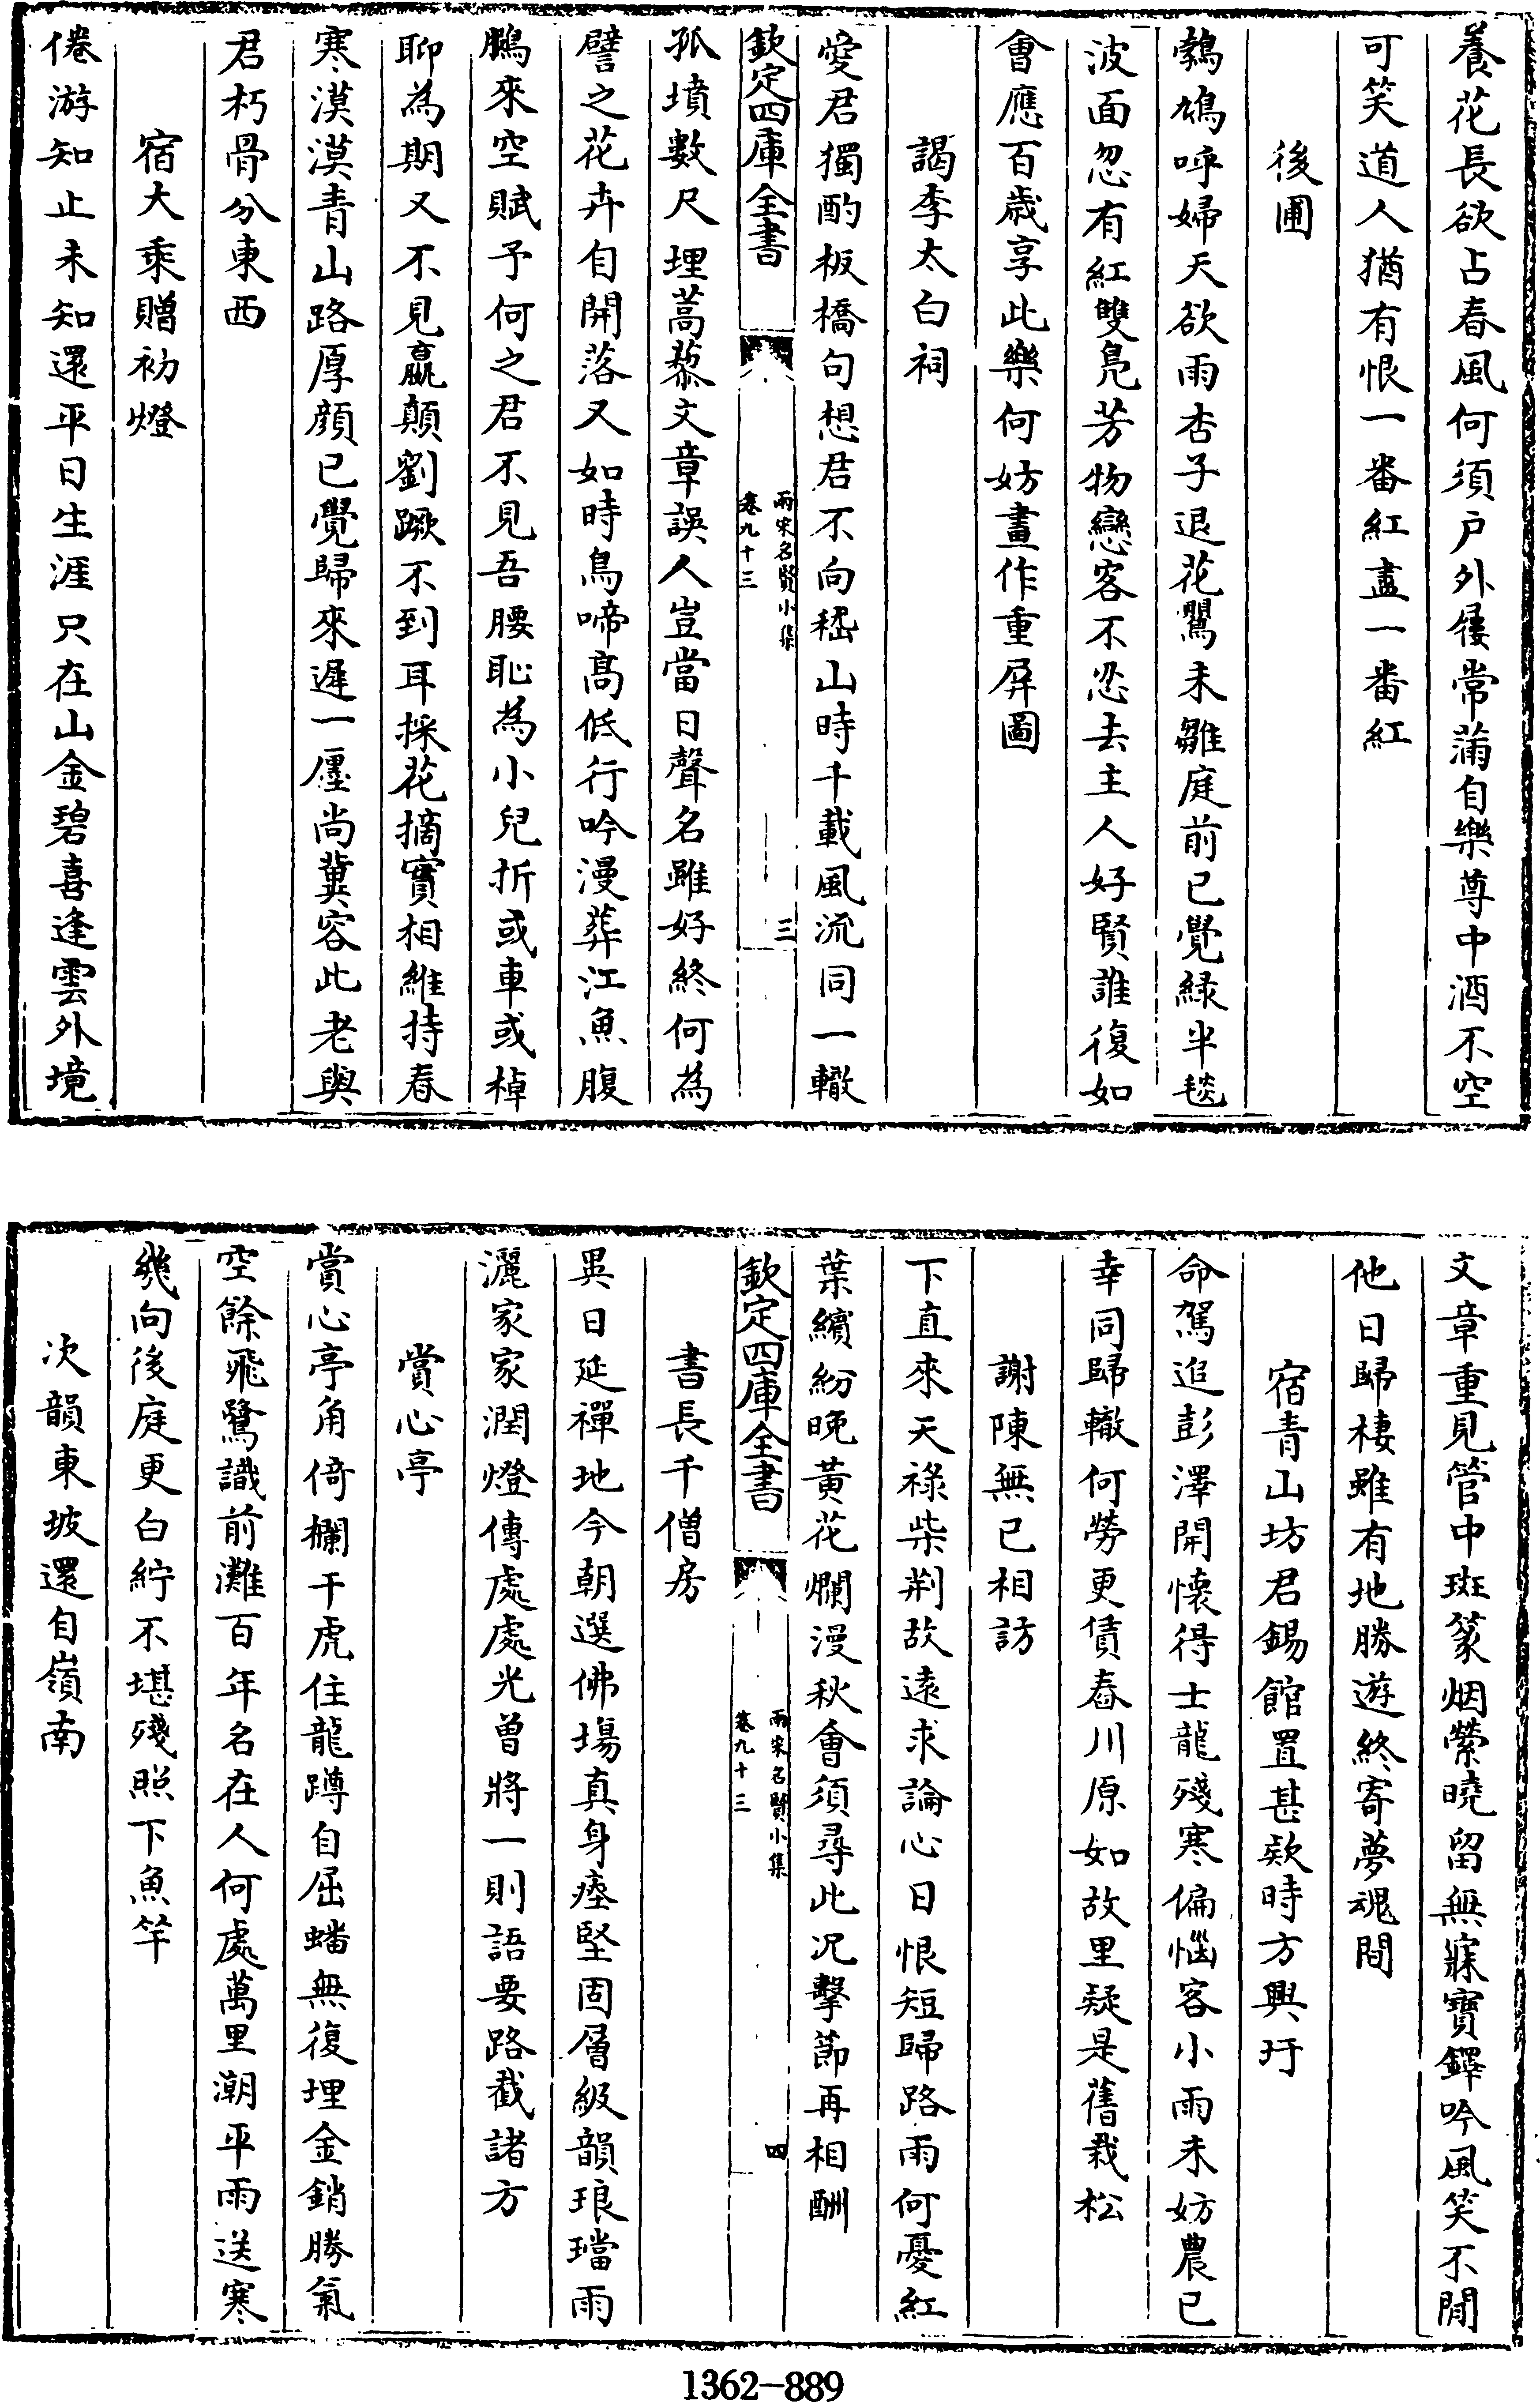 養花長欲占春風何須戸外屨常滿自樂尊中酒不空
可笑道人猶有恨一番紅盡一番紅
後圃
鵓鳩呼婦天欲雨杏子退花鸎未雛庭前已覺緑半毯
波面忽有紅雙鳧芳物戀客不忍去主人好賢誰復如
會應百歳享此樂何妨畫作重屏圖
謁李太白祠
愛君獨酌板橋句想君不向嵇山時千載風流同一轍
欽定四庫全書
兩宋名賢小集
卷九十三
三
孤墳數尺埋蒿藜文章誤人豈當日聲名雖好終何為
譬之花卉自開落又如時鳥啼髙低行吟漫葬江魚腹
鵩來空賦予何之君不見吾腰恥為小兒折或車或棹
聊為期又不見羸顛劉蹶不到耳採花摘實相維持春
寒漠漠青山路厚顔已覺歸來遲一廛尚冀容此老與
君朽骨分東西
宿大乘贈初燈
倦游知止未知還平日生涯只在山金碧喜逢雲外境
文章重見管中斑篆烟縈曉留無寐寶鐸吟風笑不閒
他日歸棲雖有地勝遊終寄夢魂間
宿青山坊君錫館置甚欵時方興圩
命駕追彭澤開懷得士龍殘寒偏惱客小雨未妨農已
幸同歸轍何勞更賃舂川原如故里疑是舊栽松
謝陳無已相訪
下直來天祿柴荆故逺求論心日恨短歸路雨何憂紅
葉繽紛晚黄花爛漫秋會須尋此况擊節再相酬
欽定四庫全書
兩宋名賢小集
卷九十三
四
書長千僧房
異日延禪地今朝選佛塲真身瘞堅固層級韻琅璫雨
灑家家潤燈傳處處光曽將一則語要路截諸方
賞心亭
賞心亭角倚欄干虎住龍蹲自屈蟠無復埋金銷勝氣
空餘飛鷺識前灘百年名在人何處萬里潮平雨送寒
幾向後庭更白紵不堪殘照下魚竿
次韻東坡還自嶺南
1362-889